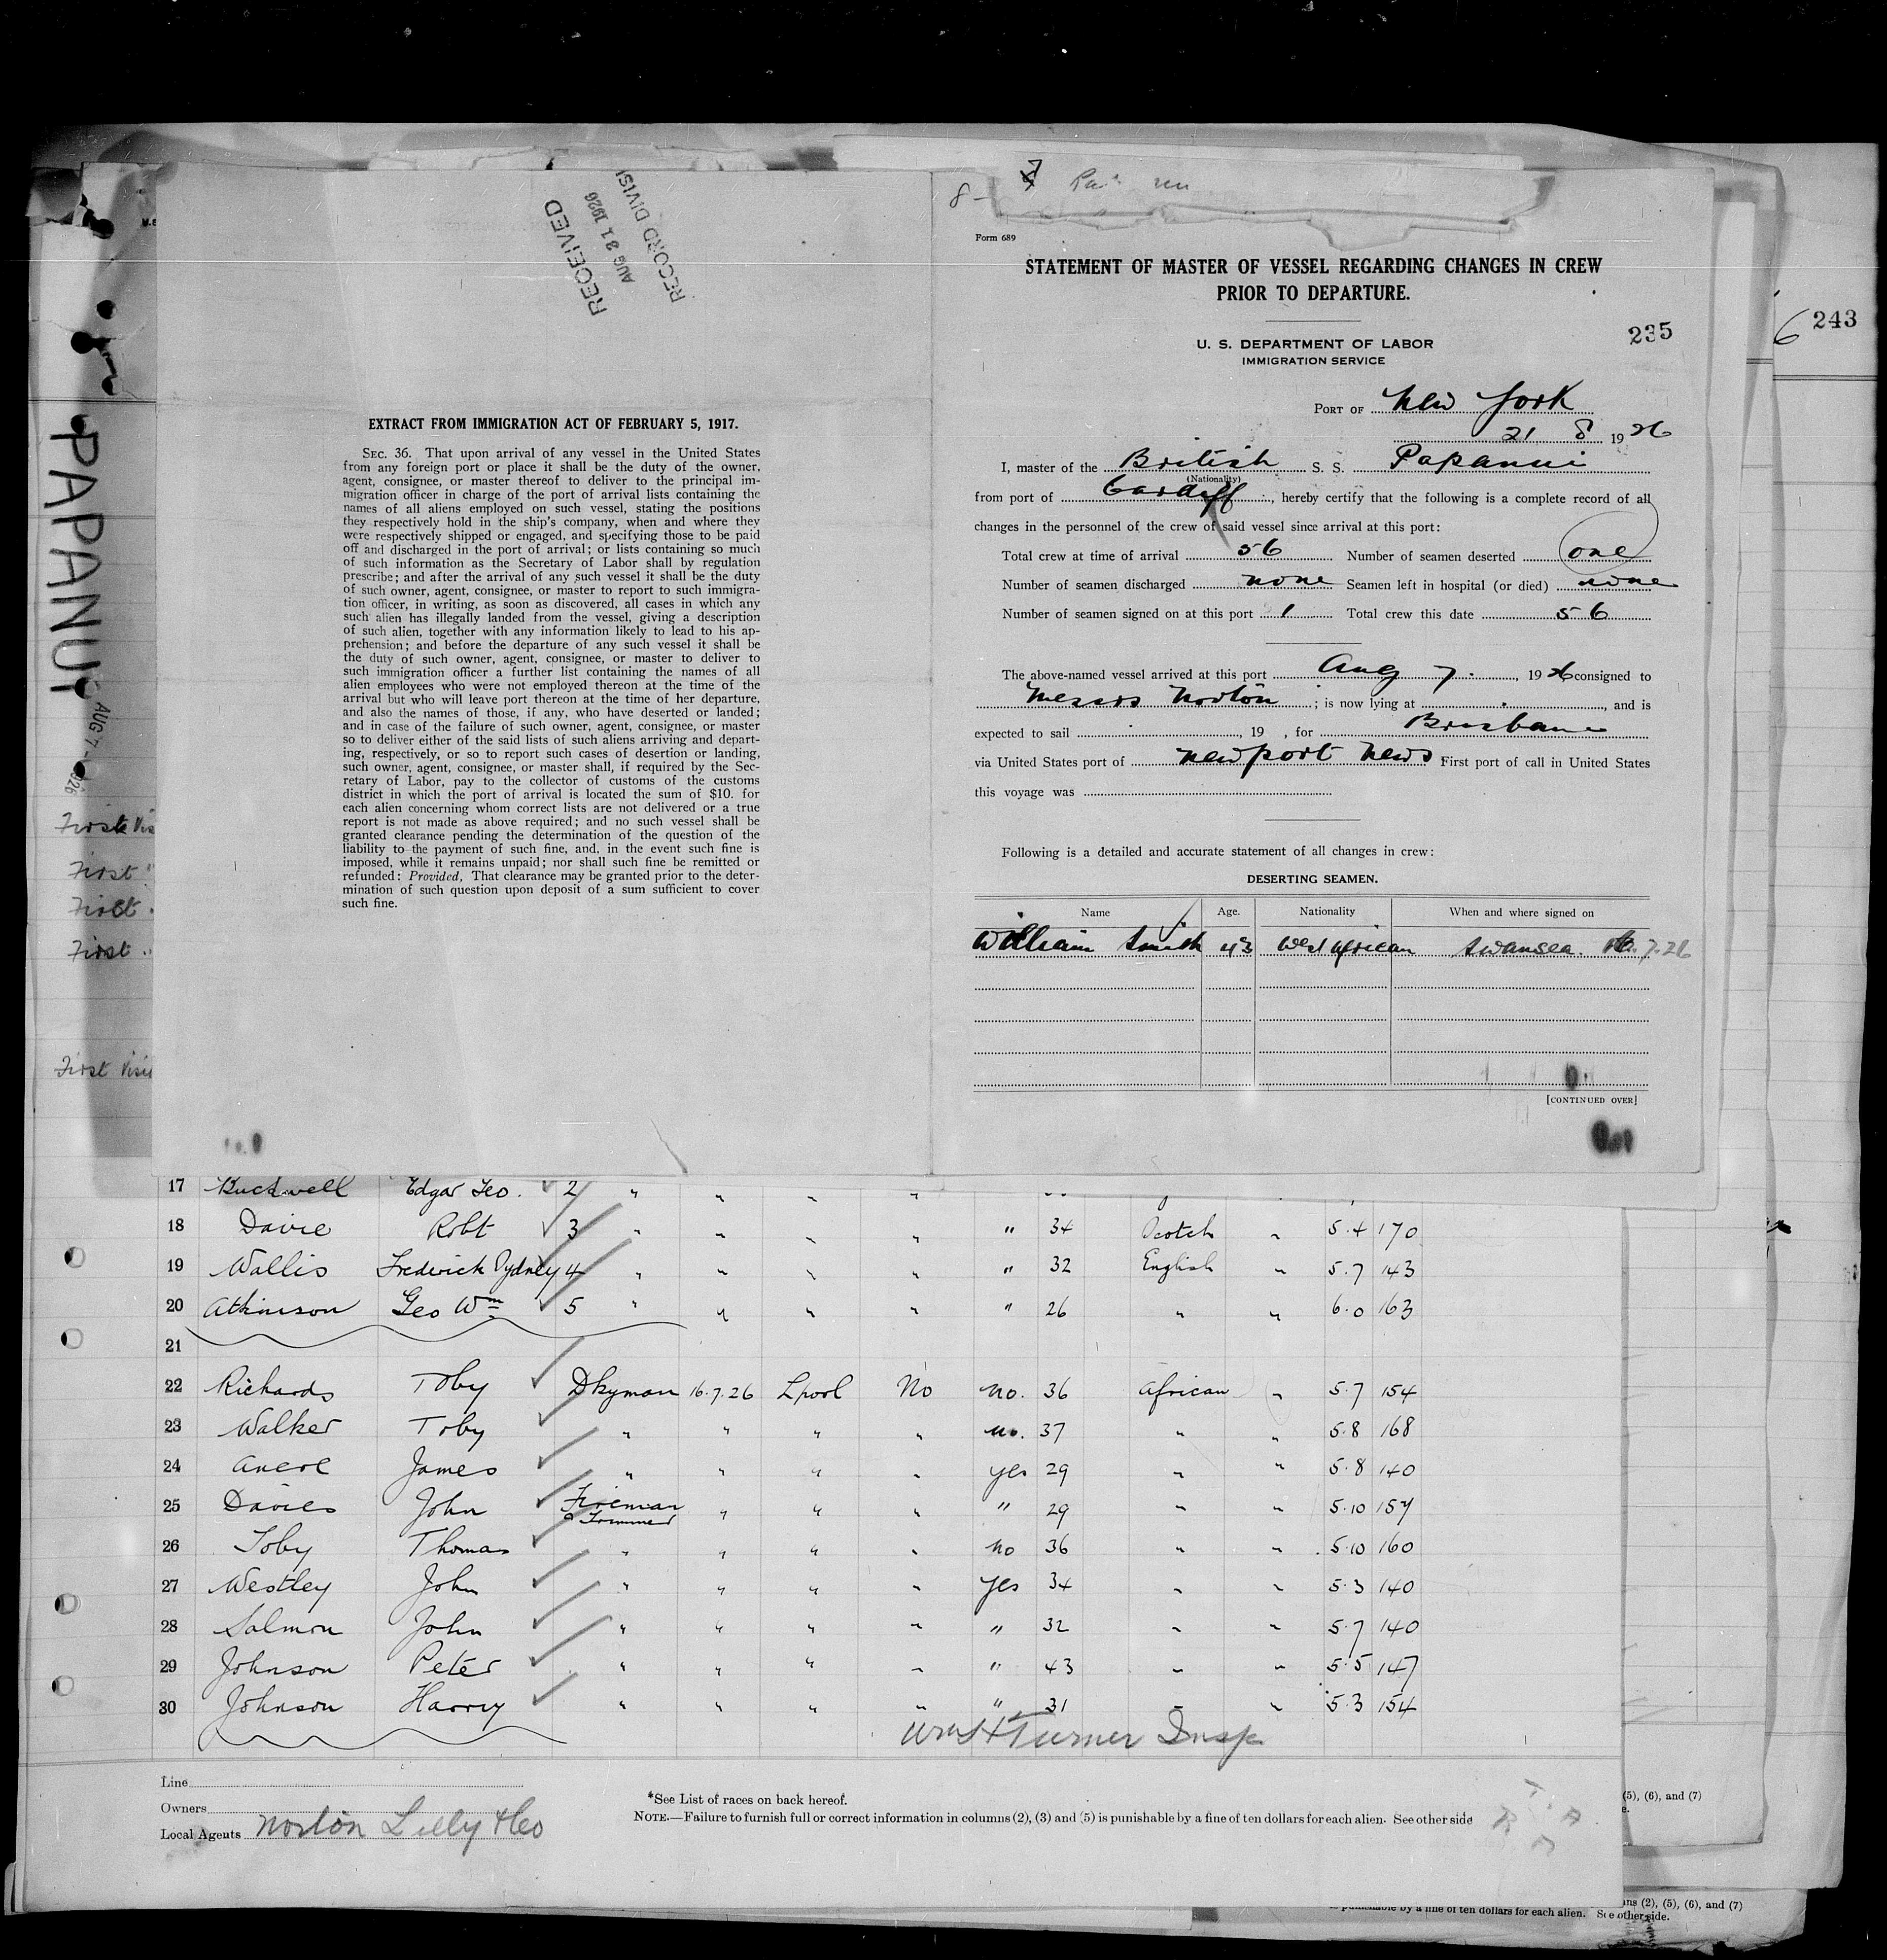 RECEIVED
AUG 31 1926
RECORD DIVISI
PAPANUI
AUG 7 - 1926
First Vis
First "
First
First "
First Visi
EXTRACT FROM IMMIGRATION ACT OF FEBRUARY 5, 1917.
SEC. 36. That upon arrival of any vessel in the United States
from any foreign port or place it shall be the duty of the owner,
agent, consignee, or master thereof to deliver to the principal im-
migration officer in charge of the port of arrival lists containing the
names of all aliens employed on such vessel, stating the positions
they respectively hold in the ship's company, when and where they
were respectively shipped or engaged, and specifying those to be paid
off and discharged in the port of arrival; or lists containing so much
of such information as the Secretary of Labor shall by regulation
prescribe; and after the arrival of any such vessel it shall be the duty
of such owner, agent, consignee, or master to report to such immigra-
tion officer, in writing, as soon as discovered, all cases in which any
such alien has illegally landed from the vessel, giving a description
of such alien, together with any information likely to lead to his ap-
prehension; and before the departure of any such vessel it shall be
the duty of such owner, agent, consignee, or master to deliver to
such immigration officer a further list containing the names of all
alien employees who were not employed thereon at the time of the
arrival but who will leave port thereon at the time of her departure,
and also the names of those, if any, who have deserted or landed;
and in case of the failure of such owner, agent, consignee, or master
so to deliver either of the said lists of such aliens arriving and depart-
ing, respectively, or so to report such cases of desertion or landing,
such owner, agent, consignee, or master shall, if required by the Sec-
retary of Labor, pay to the collector of customs of the customs
district in which the port of arrival is located the sum of $10. for
each alien concerning whom correct lists are not delivered or a true
report is not made as above required; and no such vessel shall be
granted clearance pending the determination of the question of the
liability to the payment of such fine, and, in the event such fine is
imposed, while it remains unpaid; nor shall such fine be remitted or
refunded: Provided, That clearance may be granted prior to the deter-
mination of such question upon deposit of a sum sufficient to cover
such fine.
8 - 7
Form 689
STATEMENT OF MASTER OF VESSEL REGARDING CHANGES IN CREW
PRIOR TO DEPARTURE.
235
6 243
U. S. DEPARTMENT OF LABOR
IMMIGRATION SERVICE
PORT OF New York
21 8 1926
I, master of the British S. S. Papanui
(Nationality)
from port of Cardiff, hereby certify that the following is a complete record of all
changes in the personnel of the crew of said vessel since arrival at this port:
Total crew at time of arrival 56 Number of seamen deserted one
Number of seamen discharged none Seamen left in hospital (or died) none
Number of seamen signed on at this port 1 Total crew this date 56
The above-named vessel arrived at this port Aug 7, 1926 consigned to
Messrs Norton; is now lying at , and is
expected to sail , 19 , for Brisbane
via United States port of Newport News First port of call in United States
this voyage was
Following is a detailed and accurate statement of all changes in crew:
DESERTING SEAMEN.
Name Age. Nationality When and where signed on
William Smith 43 West African Swansea. 7.26
[CONTINUED OVER]
17 Buckwell Edgar Geo. 2 " " " "
18 Davie Robt 3 " " " " " 34 Scotch " 5.4 170
19 Wallis Frederick Sydney 4 " " " " " 32 English " 5.7 143
20 Atkinson Geo Wm 5 " " " " " 26 " " 6.0 163
21
22 Richards Toby Dkyman 16.7.26 Lpool No no. 36 African " 5.7 154
23 Walker Toby " " " " no. 37 " " 5.8 168
24 James " " " " yes 29 " " 5.8 140
25 Davies John Fireman & Trimmer " " " " 29 " " 5.10 157
26 Toby Thomas " " " " no 36 " " 5.10 160
27 Westley John " " " " yes 34 " " 5.3 140
28 Salmon John " " " " " 32 " " 5.7 140
29 Johnson Peter " " " " " 43 " " 5.5 147
30 Johnson Harry " " " " " 31 " " 5.3 154
Wm H Turner Insp
Line
Owners
Local Agents Norton Lilly & Co
*See List of races on back hereof.
NOTE.—Failure to furnish full or correct information in columns (2), (3) and (5) is punishable by a fine of ten dollars for each alien. See other side
(5), (6), and (7)
ns (2), (5), (6), and (7)
is punishable by a fine of ten dollars for each alien. See other side.